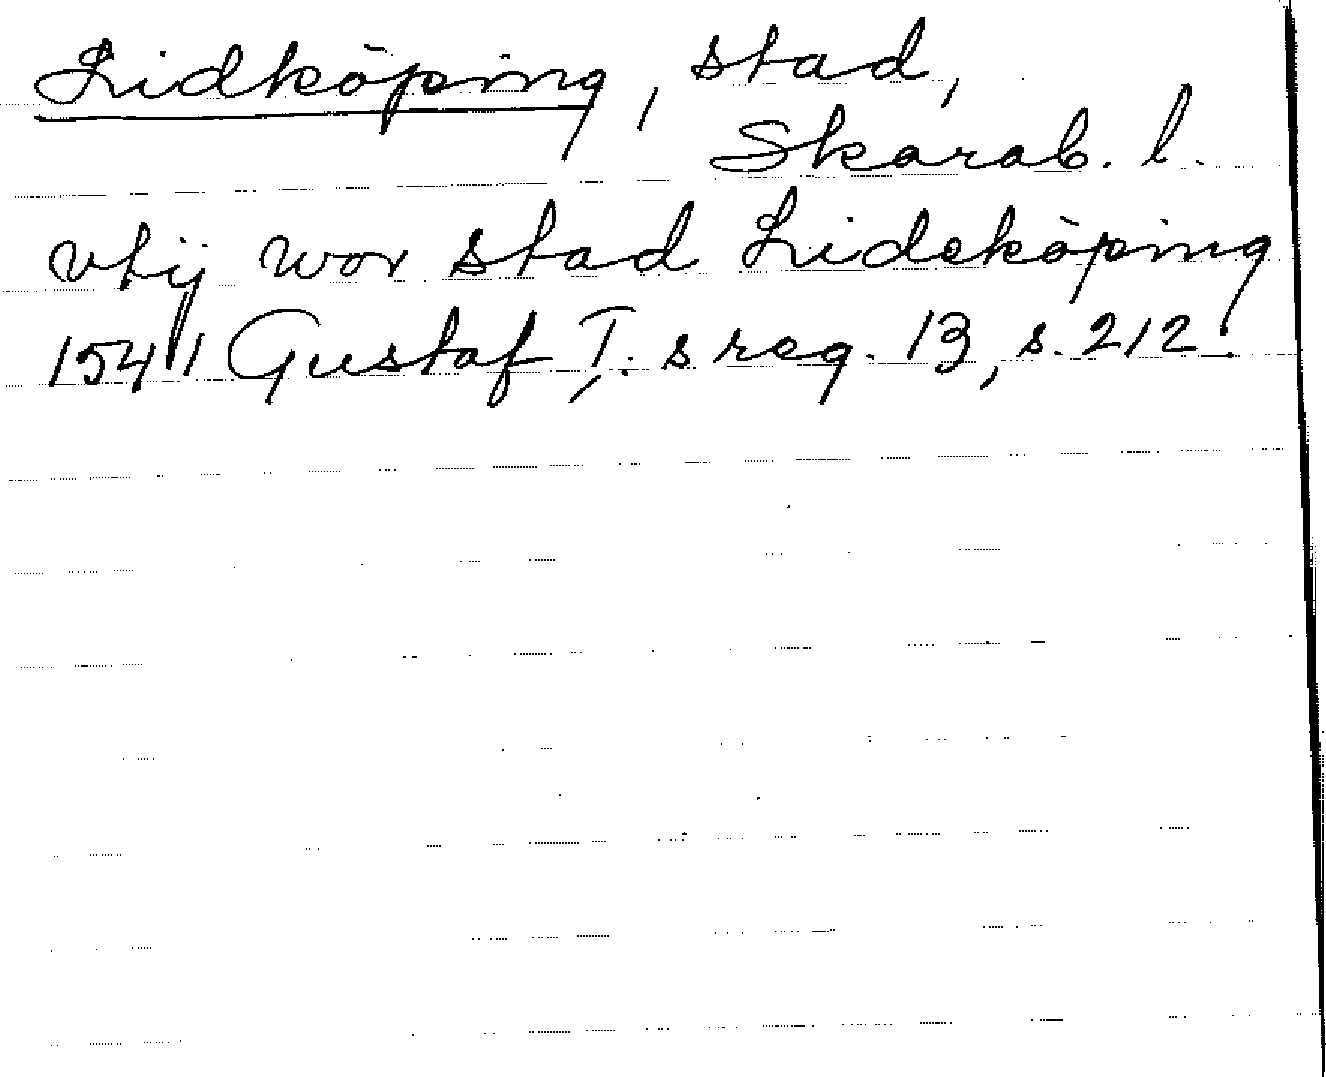 Lidköping, stad,
Skarab. l.
vtij wor stad Lideköping
1541 Gustaf I:s reg. 13, s. 212.